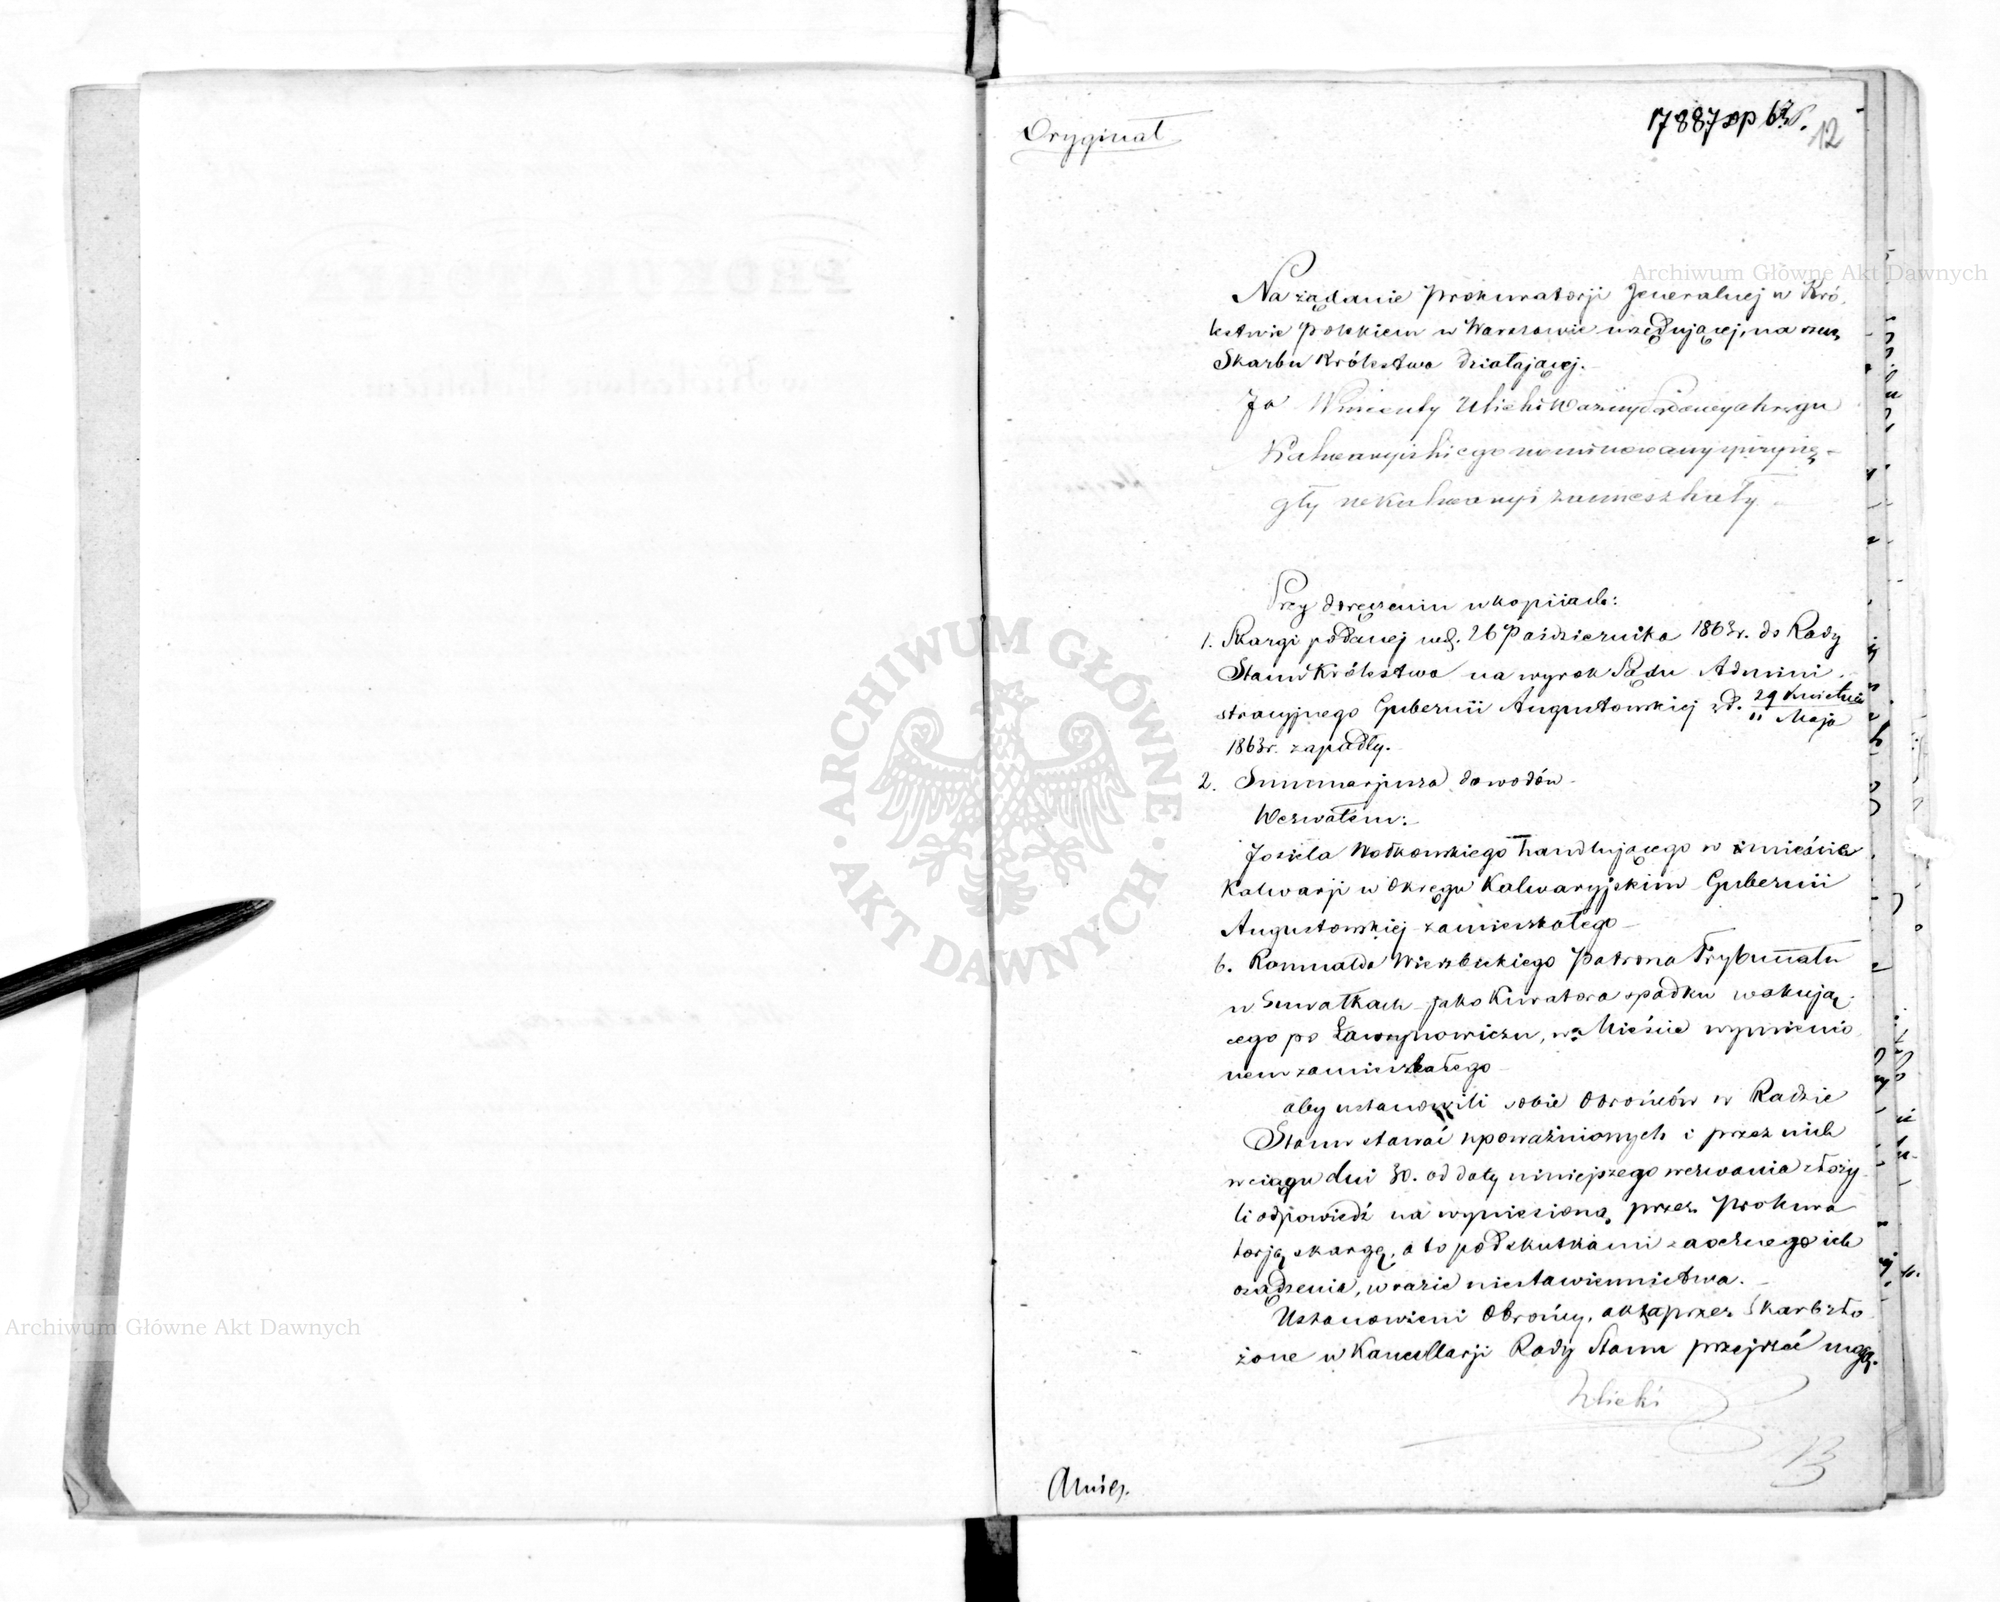 Oryginał
17887 12
Na żądanie Prokuratorji Jeneralnej w Kró-
lestwie Polskiem w Warszawie urzędującej, na rzecz
Skarbu Królestwa działającej.
Ja Wincenty Ulicki Woźny Sądowy okręgu
Kalwaryiskiego nominowany i przysię-
gły w Kalwaryi zamieszkały
Przy doręczeniu w kopiiach:
1. Skargi podanej wd. 26 Października 1863r. do Rady
Stanu Królestwa na wyrok Sądu Admini-
stracyjnego Gubernii Augustowskiej zd. 29 Kwietnia
11 Maja
1863r. zapadły.
2. Summarjusza dowodów
Wezwałem:
Josiela Wołkowskiego handlującego w mieście
Kalwarji w Okręgu Kalwaryjskim Gubernii
Augustowskiej zamieszkałego
b. Romualda Wierzbickiego Patrona Trybunału
w Suwałkach jako Kuratora spadku wakują-
cego po Ławrynowiczu, w Mieście wymienio-
nem zamieszkałego
aby ustanowili sobie Obrońców w Radzie
Stanu stawać upoważnionych i przez nich
w ciągu dni 30. od daty niniejszego wezwania złoży-
li odpowiedź na wyniesioną przez Prokura-
torję skargę, a to pod skutkami zaocznego ich
osądzenia, w razie niestawiennictwa.
Ustanowieni Obrońcy, akta przez Skarb zło-
żone w Kancellarji Rady Stanu przejrzeć mogą.
Ulicki
Archiwum Główne Akt Dawnych
Archiwum Główne Akt Dawnych
ARCHIWUM GŁÓWNE AKT DAWNYCH